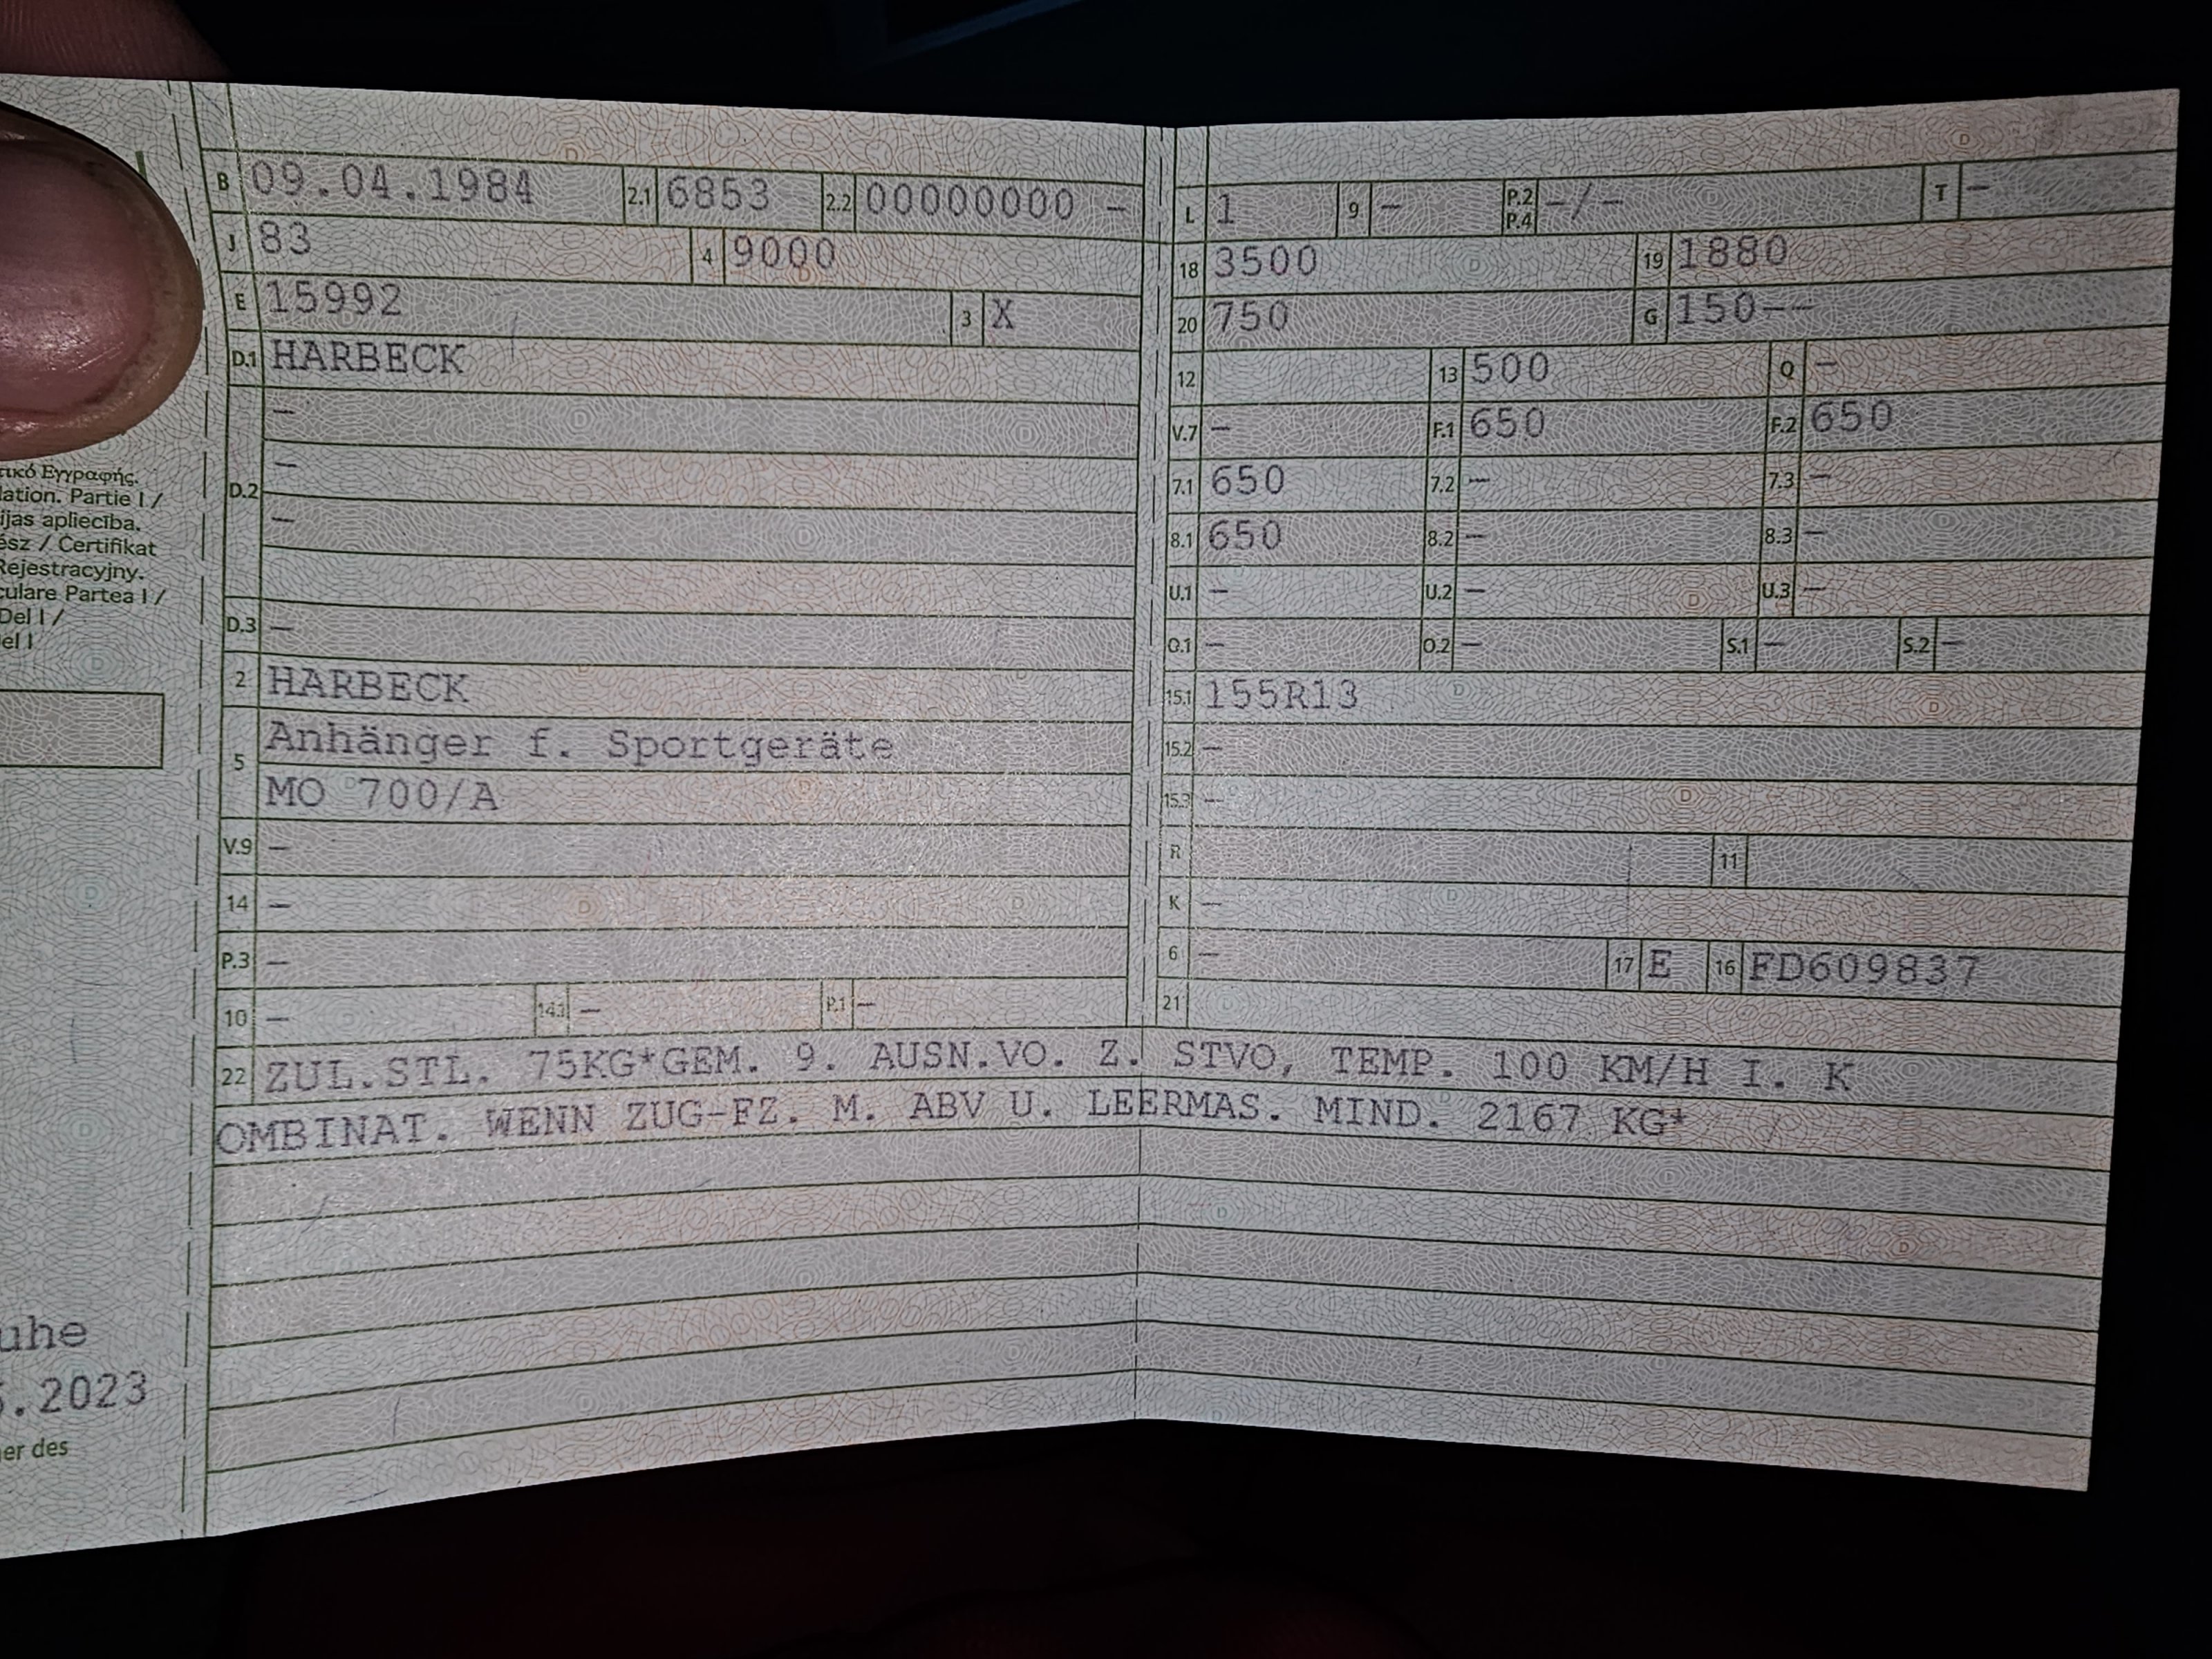 τικό Εγγραφής.
lation. Partie I /
ijas apliecība.
ész / Certifikat
Rejestracyjny.
culare Partea I /
Del I /
el I
uhe
.2023
er des
B 09.04.1984 2.1 6853 2.2 00000000 -
J 83 4 9000
E 15992 3 X
D.1 HARBECK
-
D.2 -
-
D.3 -
2 HARBECK
5 Anhänger f. Sportgeräte
MO 700/A
V.9 -
14 -
P.3 -
10 - 14.1 - P.1 -
L 1 9 - P.2 P.4 -/- T -
18 3500 19 1880
20 750 G 150--
12 13 500 Q -
V.7 - F.1 650 F.2 650
7.1 650 7.2 - 7.3 -
8.1 650 8.2 - 8.3 -
U.1 - U.2 - U.3 -
O.1 - O.2 - S.1 - S.2 -
15.1 155R13
15.2 -
15.3 -
R 11
K -
6 - 17 E 16 FD609837
21
22 ZUL.STL. 75KG*GEM. 9. AUSN.VO. Z. STVO, TEMP. 100 KM/H I. K
OMBINAT. WENN ZUG-FZ. M. ABV U. LEERMAS. MIND. 2167 KG*